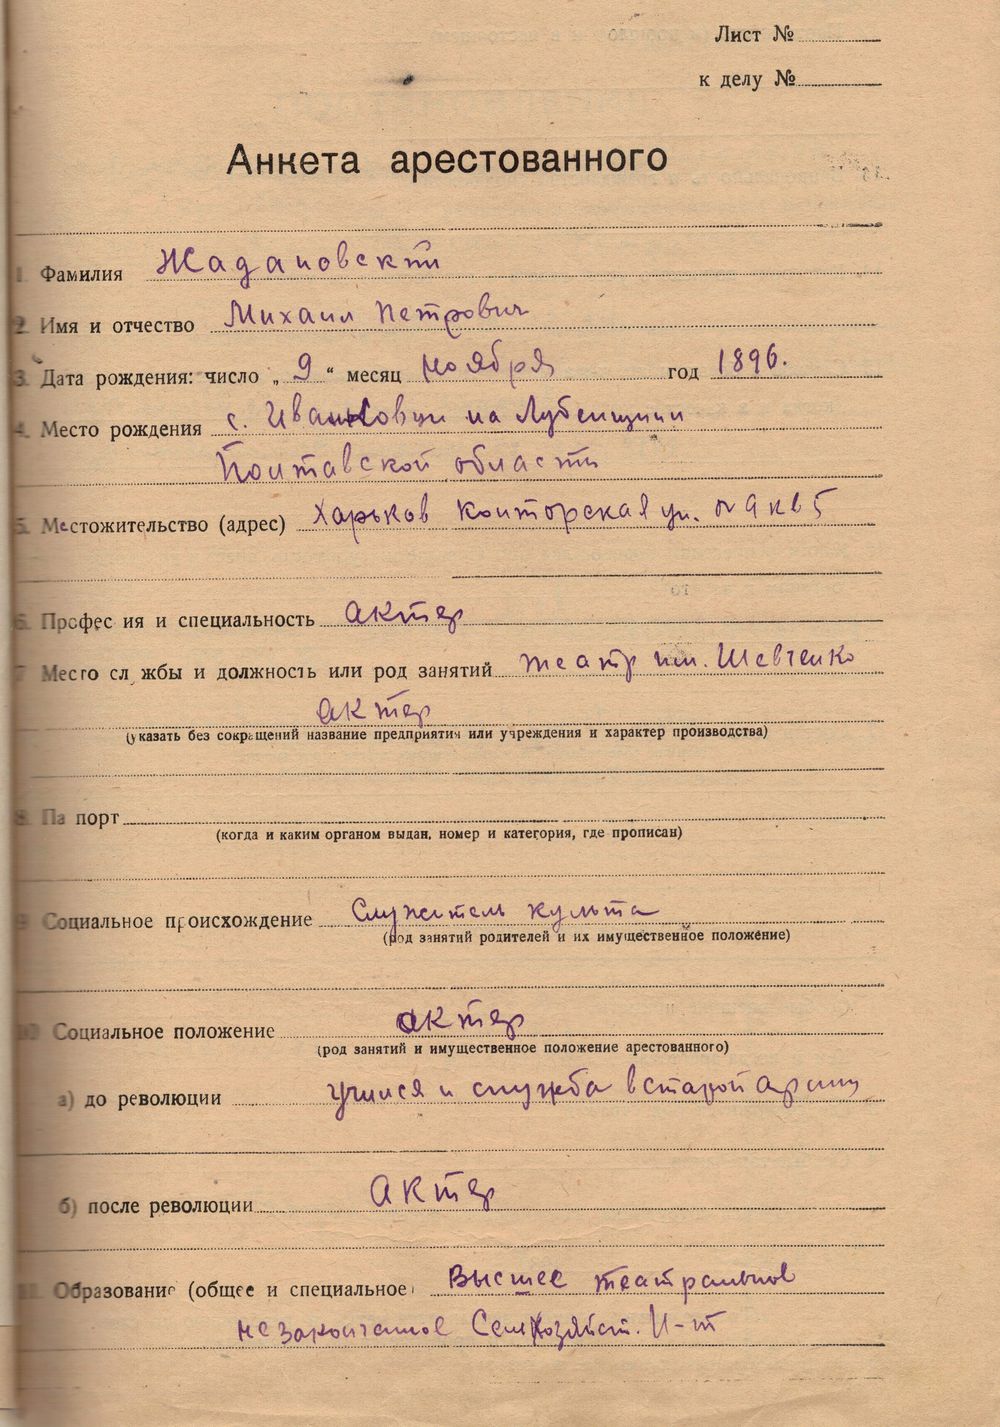 Лист №
к делу №
Анкета арестованного
1. Фамилия Жадановский
2. Имя и отчество Михаил Петрович
3. Дата рождения: число „ 9 “ месяц Ноября год 1896.
4. Место рождения с. Иванковцы на Лубенщини
Полтавской области
5. Местожительство (адрес) Харьков Конторская ул. № 9 кв 5
6. Професия и специальность актер
7. Место службы и должность или род занятий театр им. Шевченко
актер
(указать без сокращений название предприятия или учреждения и характер производства)
8. Паспорт
(когда и каким органом выдан, номер и категория, где прописан)
9. Социальное происхождение Служитель культа
(род занятий родителей и их имущественное положение)
10. Социальное положение актер
(род занятий и имущественное положение арестованного)
а) до революции учился и служба в старой армии
б) после революции актер
11. Образование (общее и специальное) Высшее театральное
незаконченное Сельхозяйст. И-т